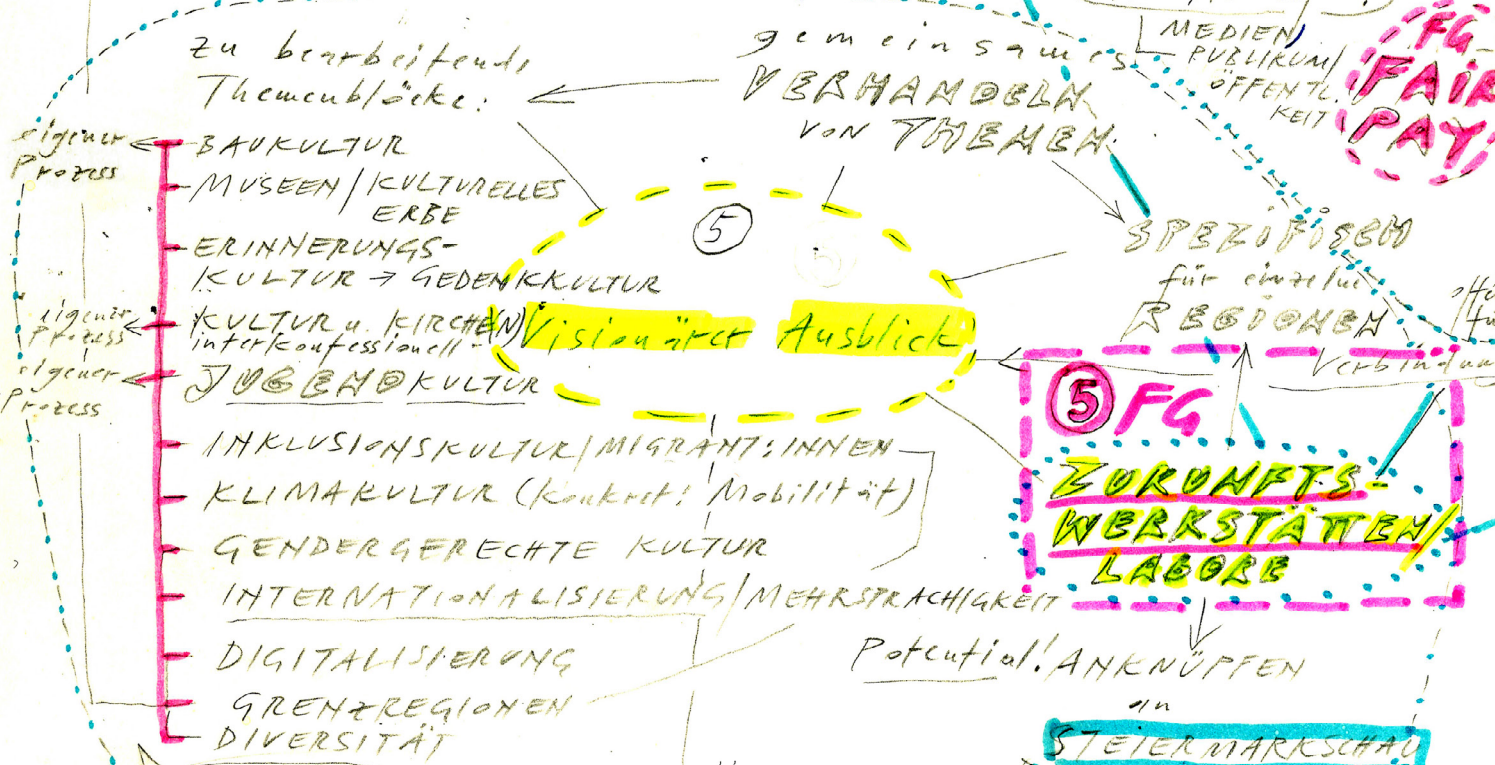 zu bearbeitende
Themenblöcke:
eigener
Prozess
BAUKULTUR
MUSEEN/KULTURELLES
ERBE
ERINNERUNGS-
KULTUR → GEDENKKULTUR
eigener
Prozess
KULTUR u. KIRCHE(N)
interkonfessionell-
eigener
Prozess
JUGENDKULTUR
INKLUSIONSKULTUR/MIGRANT:INNEN
KLIMAKULTUR (konkret: Mobilität)
GENDERGERECHTE KULTUR
INTERNATIONALISIERUNG/MEHRSPRACHIGKEIT
DIGITALISIERUNG
GRENZREGIONEN
DIVERSITÄT
gemeinsames
VERHANDELN
VON THEMEN
5
Visionärer Ausblick
MEDIEN/
PUBLIKUM/
ÖFFENTL.
KEIT
FG
FAIR
PAY
SPEZIFISCH
für einzelne
REGIONEN
Verbindung
5 FG
ZUKUNFTS-
WERKSTÄTTEN/
LABORE
Potential! ANKNÜPFEN
an
STEIERMARKSCHAU